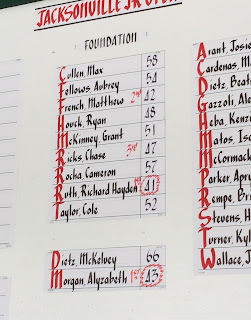 JACKSONVILLE JR OPEN
FOUNDATION
Cullen, Max 58
Fellows, Aubrey 54
French, Matthew 2nd 42
Houck, Ryan 48
McKinney, Grant 51
Ricks, Chase 3rd 47
Rocha, Cameron 57
Ruth, Richard Hayden 1st 41
Taylor, Cole 52
Dietz, McKelvey 66
Morgan, Alyzabeth 1st 43
Arant, Josie
Cardenas, M
Dietz, Beat
Gazzoli, Ale
Heba, Kenz
Matos, Ise
McCormack
Parker, Apry
Rempe, Bri
Stevens, H
Turner, Kyl
Wallace, J